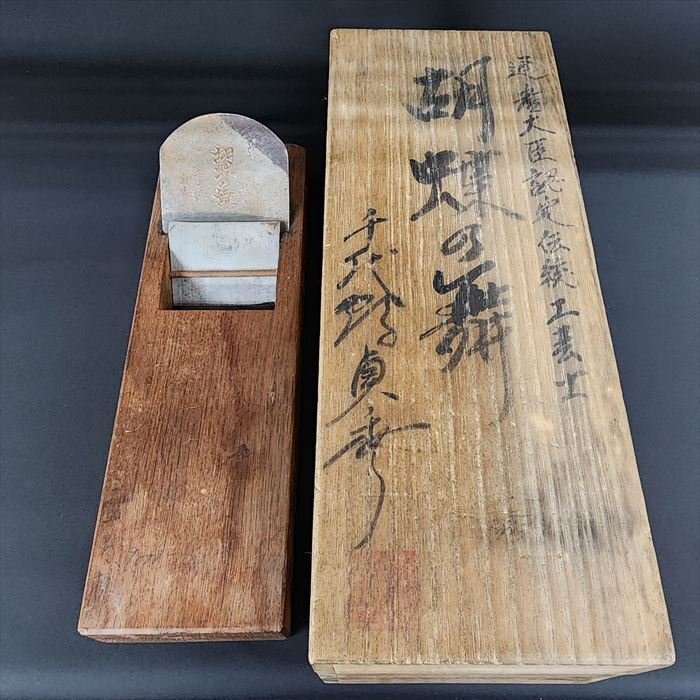 通産大臣認定伝統工芸士
胡蝶の舞
千代鶴貞秀
胡蝶の舞